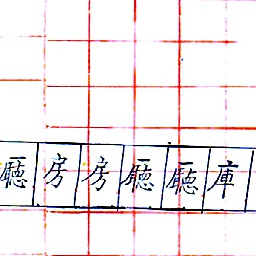 廳房房廳廳庫